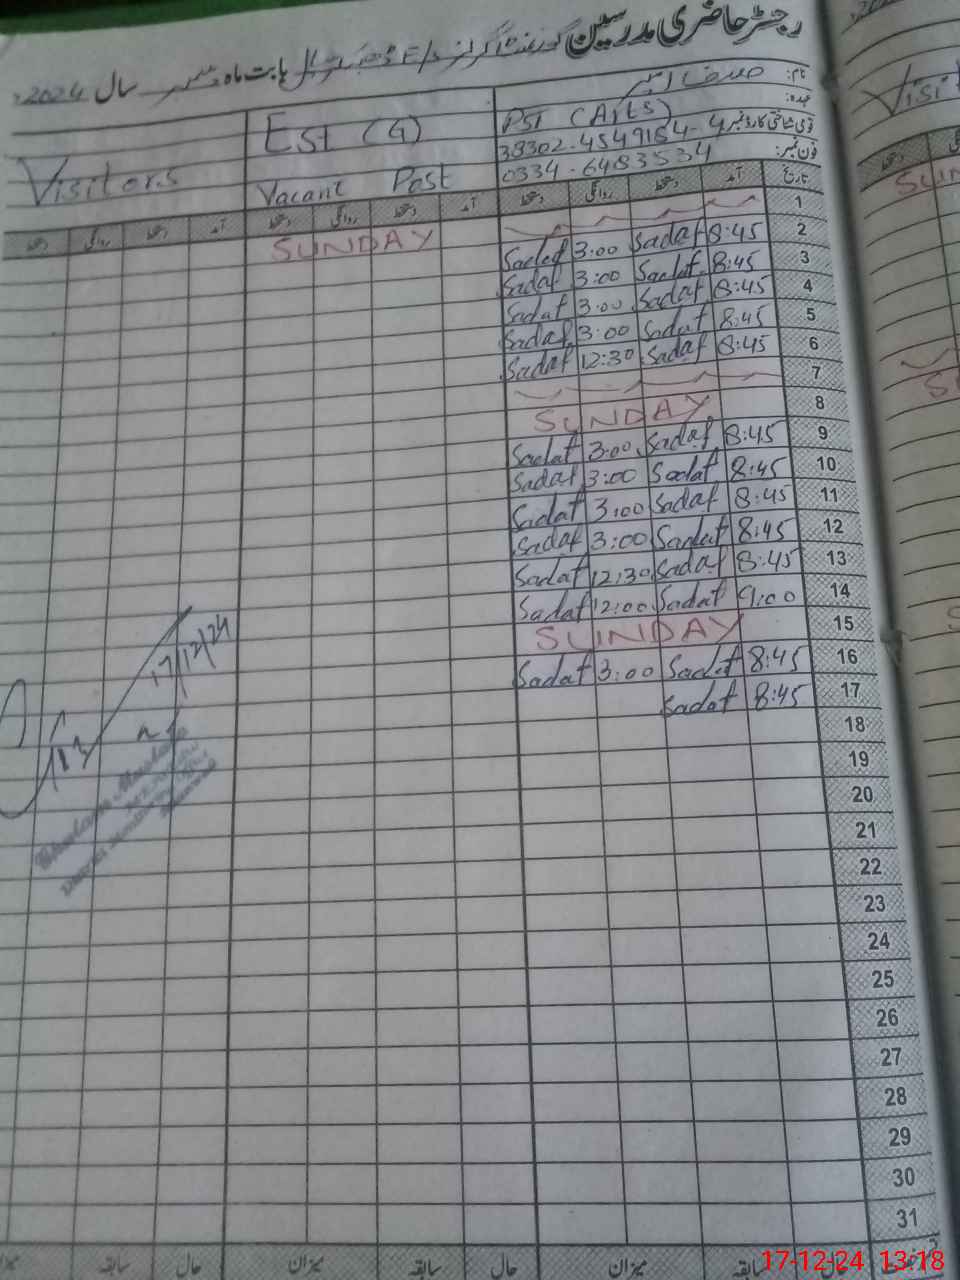 رجسٹر حاضری مدرسین گورنمنٹ گرلز E/S بابت ماہ دسمبر سال 2024ء
نام: صدف
عہدہ: PST (Arts) Est (G)
قومی شناختی کارڈ نمبر 38302-4549154-4
فون نمبر: 0334-6483534 Vacant Post Visitors
تاریخ آمد دستخط روانگی دستخط آمد دستخط روانگی دستخط آمد دستخط روانگی دستخط
1 SUNDAY
2 8:45 Sadaf 3:00 Sadaf
3 8:45 Sadaf 3:00 Sadaf
4 8:45 Sadaf 3:00 Sadaf
5 8:45 Sadaf 3:00 Sadaf
6 8:45 Sadaf 12:30 Sadaf
7
8 SUNDAY
9 8:45 Sadaf 3:00 Sadaf
10 8:45 Sadaf 3:00 Sadaf
11 8:45 Sadaf 3:00 Sadaf
12 8:45 Sadaf 3:00 Sadaf
13 8:45 Sadaf 12:30 Sadaf
14 9:00 Sadaf 12:00 Sadaf
15 SUNDAY
16 8:45 Sadaf 3:00 Sadaf
17 8:45 Sadaf
17/12/24
18
19
20
21
22
23
24
25
26
27
28
29
30
31
حال سابقہ میزان حال سابقہ میزان حال سابقہ میزان
17-12-24 13:18